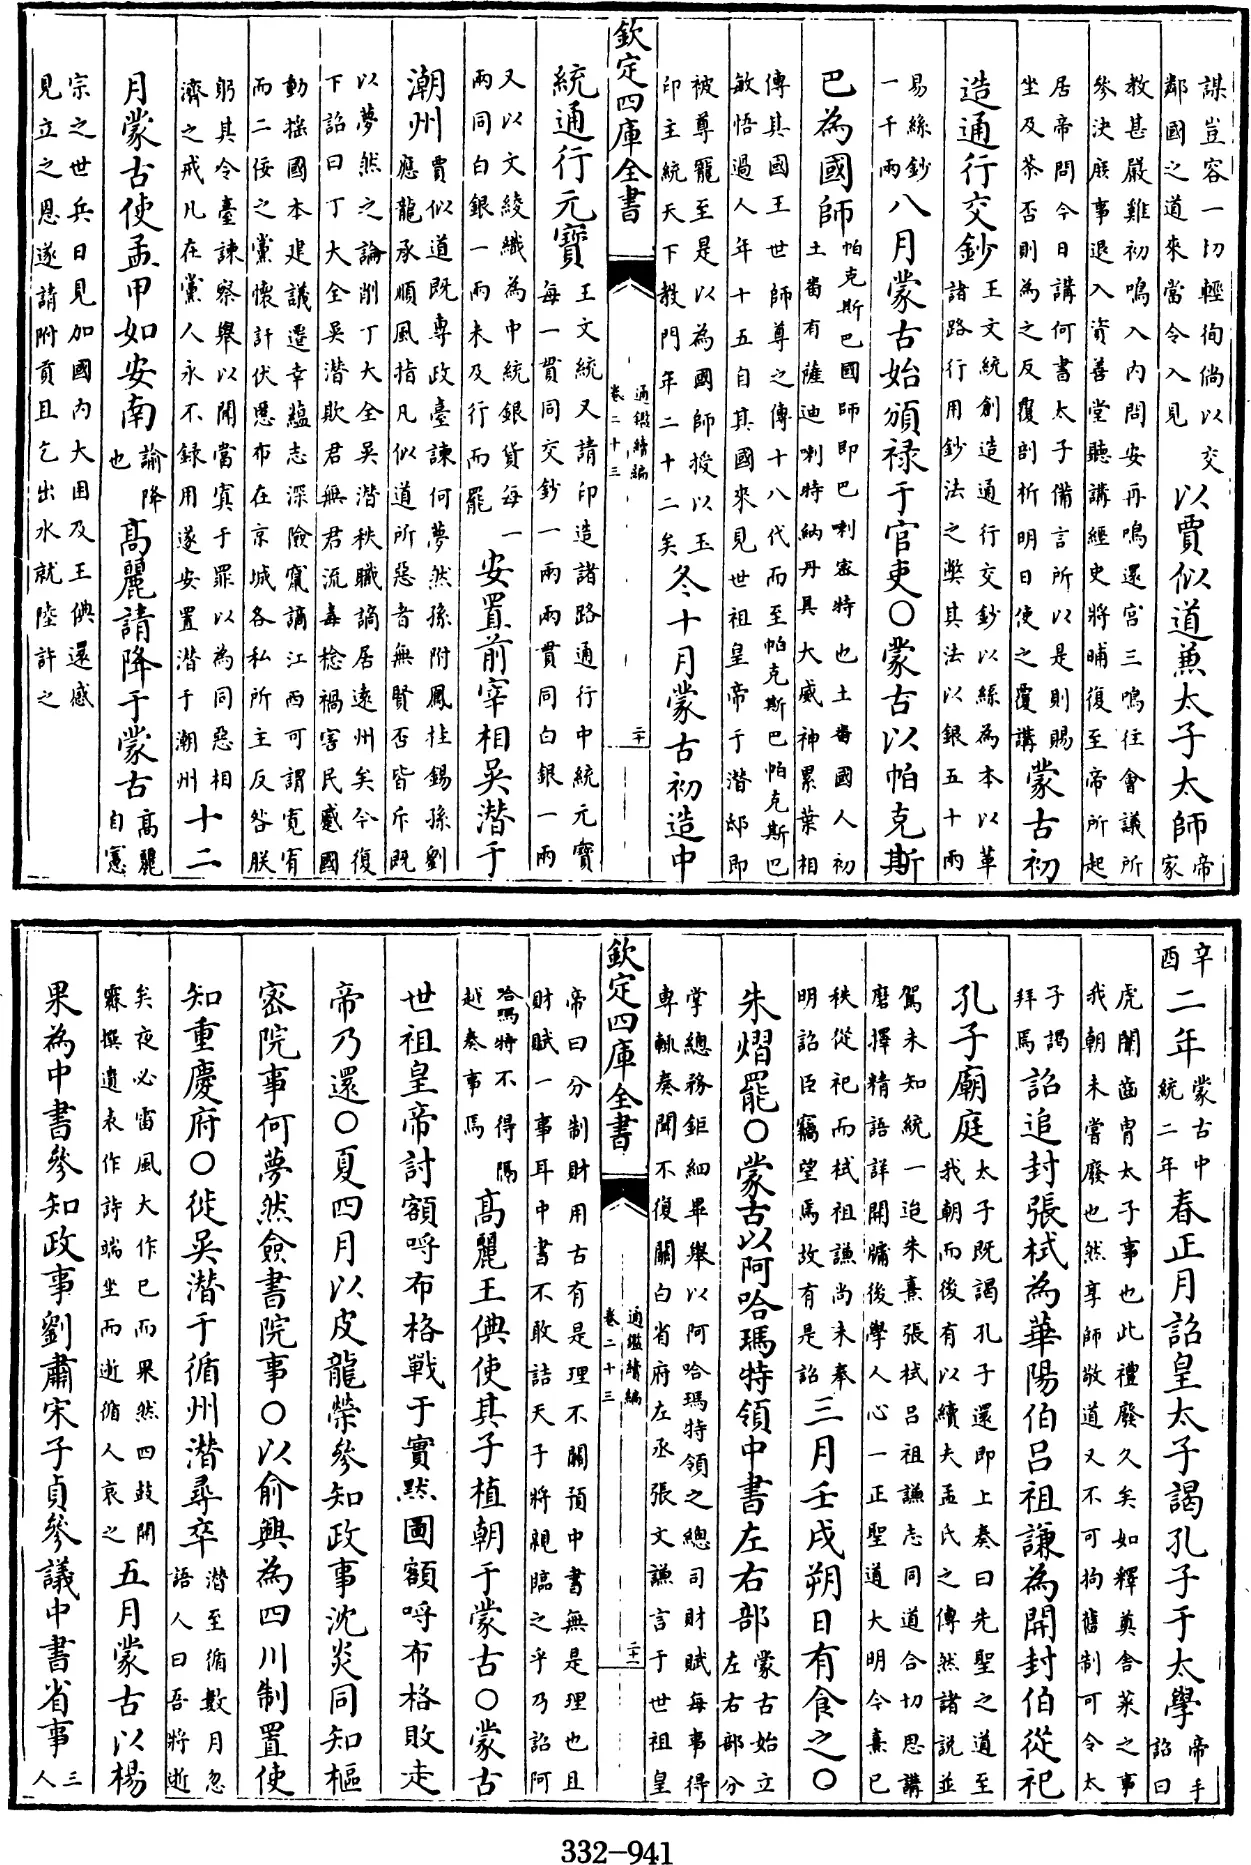 謀豈容一切輕徇倘以交
鄰國之道來當令入見
以賈似道兼太子太師
帝
家
教甚嚴雞初鳴入內問安再鳴還宮三鳴往會議所
參決庶事退入資善堂聽講經史將晡復至帝所起
居帝問今日講何書太子備言所以是則賜
坐及茶否則為之反覆剖析明日使之覆講
蒙古初
造通行交鈔
王文統創造通行交鈔以絲為本以革
諸路行用鈔法之獘其法以銀五十兩
易絲鈔
一千兩
八月蒙古始頒禄于官吏○蒙古以帕克斯
巴為國師
帕克斯巴國師即巴喇密特也土番國人初
土番有薩迪喇特納丹具大威神累葉相
傳其國王世師尊之傳十八代而至帕克斯巴帕克斯巴
敏悟過人年十五自其國來見世祖皇帝于潛邸即
被尊寵至是以為國師授以玉
印主統天下教門年二十二矣
冬十月蒙古初造中
欽定四庫全書
通鑑續編
卷二十三
二十
統通行元寶
王文統又請印造諸路通行中統元寶
每一貫同交鈔一兩兩貫同白銀一兩
又以文綾織為中統銀貨每一
兩同白銀一兩未及行而罷
安置前宰相吳潛于
潮州
賈似道既専政臺諫何夢然孫附鳳桂錫孫劉
應龍承順風指凡似道所惡者無賢否皆斥既
以夢然之論削丁大全吳潛秩職謫居遠州矣今復
下詔曰丁大全吳潛欺君無君流毒稔禍害民蹙國
動摇國本建議遷幸蘊志深險竄謫江西可謂寛宥
而二佞之黨懷計伏慝布在京城各私所主反咎朕
躬其令臺諫察舉以聞當寘于罪以為同惡相
濟之戒凡在黨人永不録用遂安置潛于潮州
十二
月蒙古使孟甲如安南
諭降
也
高麗請降于蒙古
高麗
自憲
宗之世兵日見加國內大困及王倎還感
見立之恩遂請附貢且乞出水就陸許之
辛
酉
二年
蒙古中
統二年
春正月詔皇太子謁孔子于太學
帝手
詔曰
虎闈齒胄太子事也此禮廢久矣如釋奠舍菜之事
我朝未嘗廢也然享師敬道又不可拘舊制可令太
子謁
拜焉
詔追封張栻為華陽伯吕祖謙為開封伯從祀
孔子廟庭
太子既謁孔子還即上奏曰先聖之道至
我朝而後有以續夫孟氏之傳然諸說並
駕未知統一迨朱熹張栻吕祖謙志同道合切思講
磨擇精語詳開牖後學人心一正聖道大明今熹已
秩從祀而栻祖謙尚未奉
明詔臣竊望焉故有是詔
三月壬戌朔日有食之○
朱熠罷○蒙古以阿哈瑪特領中書左右部
蒙古始立
左右部分
掌總務鉅細畢舉以阿哈瑪特領之總司財賦每事得
專輒奏聞不復關白省府左丞張文謙言于世祖皇
帝曰分制財用古有是理不關預中書無是理也且
財賦一事耳中書不敢詰天子將親臨之乎乃詔阿
哈瑪特不得隔
越奏事焉
高麗王倎使其子植朝于蒙古○蒙古
世祖皇帝討額呼布格戰于實黙圖額呼布格敗走
帝乃還○夏四月以皮龍榮參知政事沈炎同知樞
密院事何夢然僉書院事○以俞興為四川制置使
知重慶府○徙吳潛于循州潛尋卒
潛至循數月忽
語人曰吾將逝
矣夜必雷風大作已而果然四鼓開
霽撰遺表作詩端坐而逝循人哀之
五月蒙古以楊
果為中書參知政事劉肅宋子貞參議中書省事
三
人
欽定四庫全書
通鑑續編
卷二十三
二十一
332-941